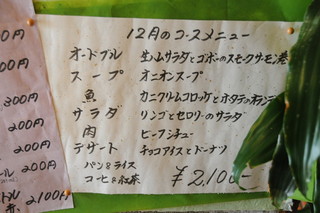 12月のコースメニュー
オードブル 生ハムサラダとゴボーのスモークサーモン巻
スープ オニオンスープ
魚 カニクリームコロッケとホタテの
サラダ リンゴとセロリーのサラダ
肉 ビーフシチュー
デザート チョコアイスとドーナツ
パン&ライス
コーヒー&紅茶
¥2,100-
0円
00円
300円
200円
200円
200円
2,100円